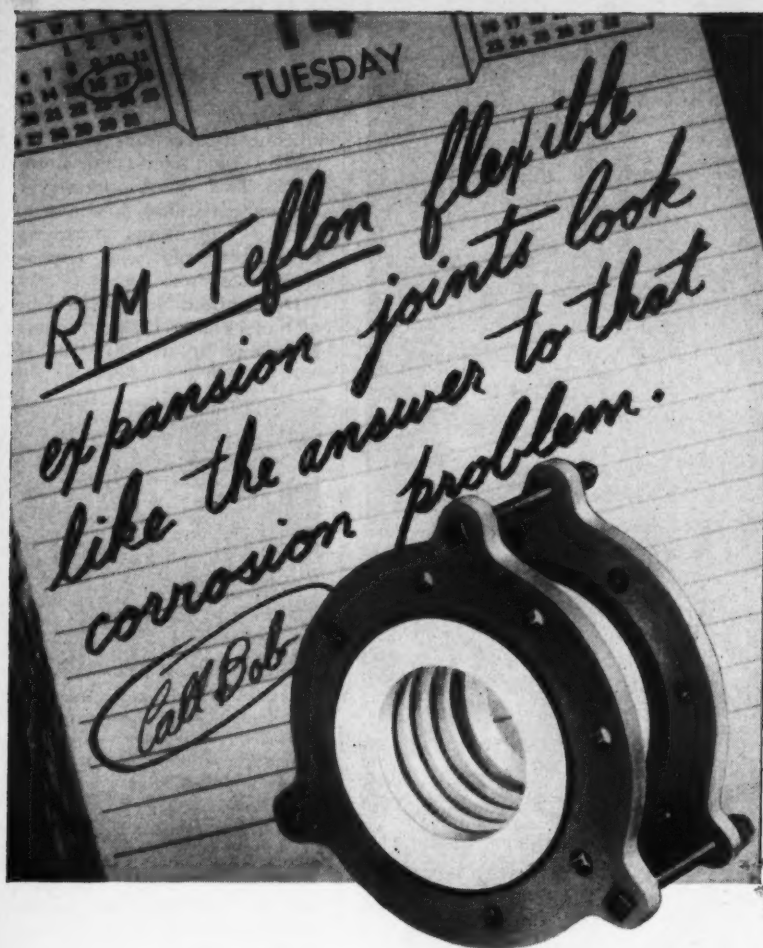 14
TUESDAY
R/M Teflon flexible
expansion joints look
like the answer to that
corrosion problem.
Call Bob